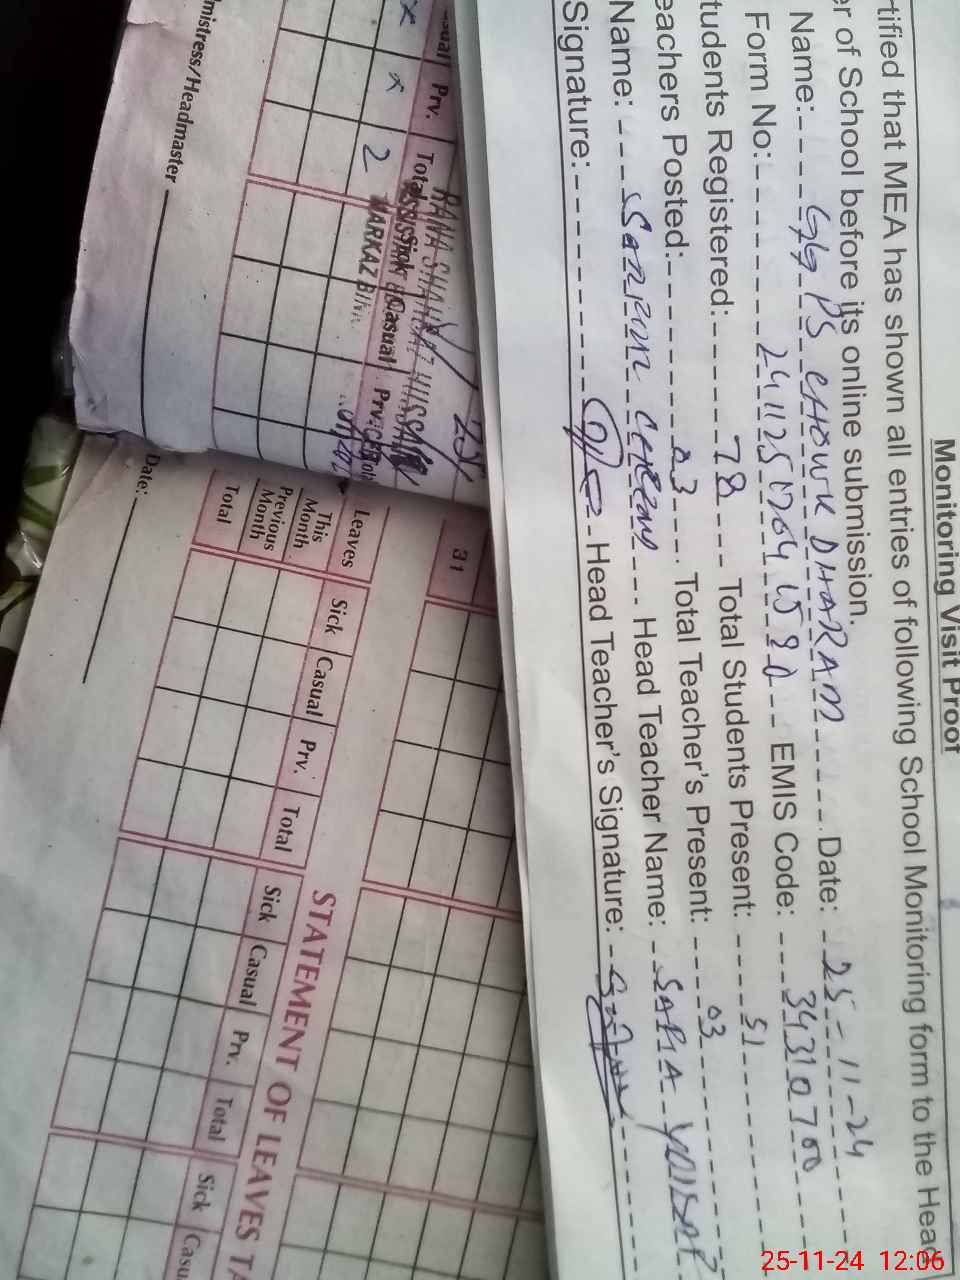 Monitoring Visit Proof
rtified that MEA has shown all entries of following School Monitoring form to the Head
er of School before its online submission.
Name: GG PS CHOWK DHARAM Date: 25-11-24
Form No: EMIS Code: 34310700
tudents Registered: 78 Total Students Present: 51
eachers Posted: 03 Total Teacher's Present: 03
Name: Head Teacher Name: SABA
Signature: Head Teacher's Signature:
31
Prv. Total Sick Casual Prv.
x x 2
MARKAZ
mistress/Headmaster
Date:
STATEMENT OF LEAVES TA
Leaves Sick Casual Prv. Total Sick Casual Prv. Total Sick Casu
This Month
Previous Month
Total
25-11-24 12:06